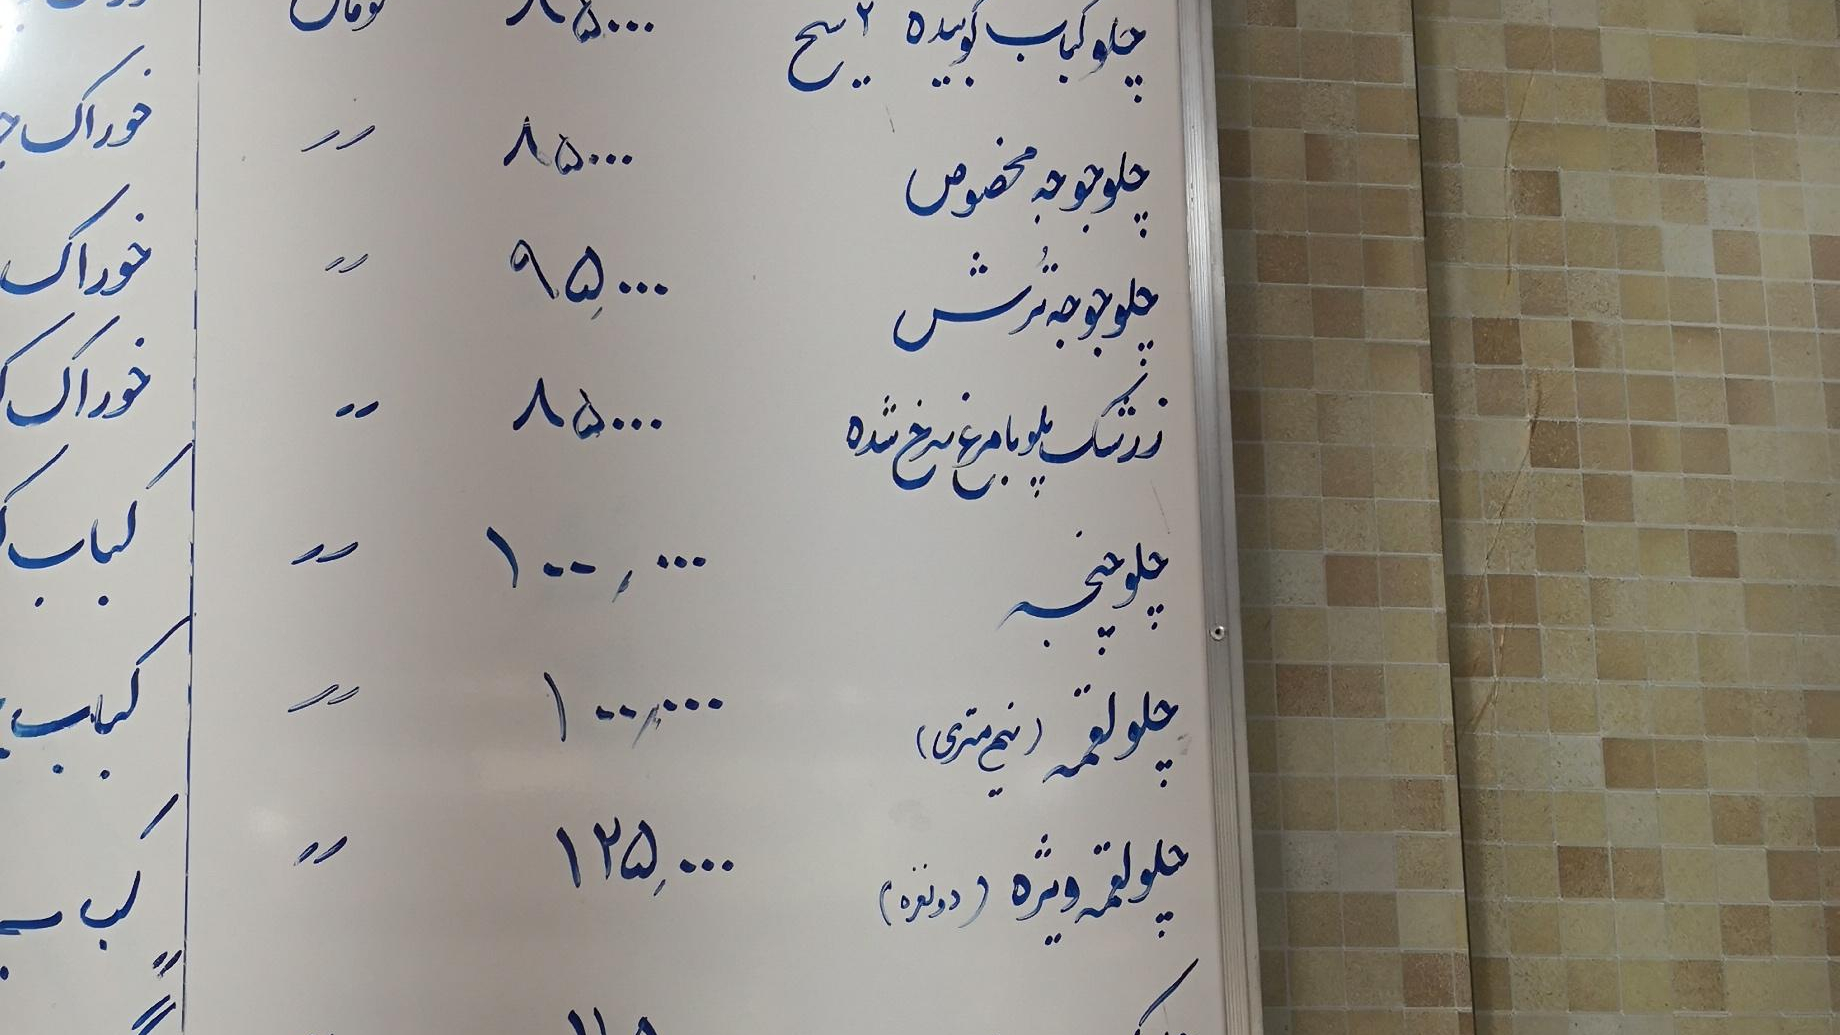 چلوکباب کوبیده ۲ سیخ ۸۵۰۰۰ تومان
چلوجوجه مخصوص ۸۵۰۰۰ 〃
چلوجوجه تُرش ۹۵,۰۰۰ 〃
زرشک پلو با مرغ سرخ شده ۸۵۰۰۰ 〃
چلوچنجه ۱۰۰,۰۰۰ 〃
چلو لقمه (نیم متری) ۱۰۰,۰۰۰ 〃
چلو لقمه ویژه (دو نفره) ۱۲۵,۰۰۰ 〃
خوراک
خوراک
خوراک
کباب
کباب